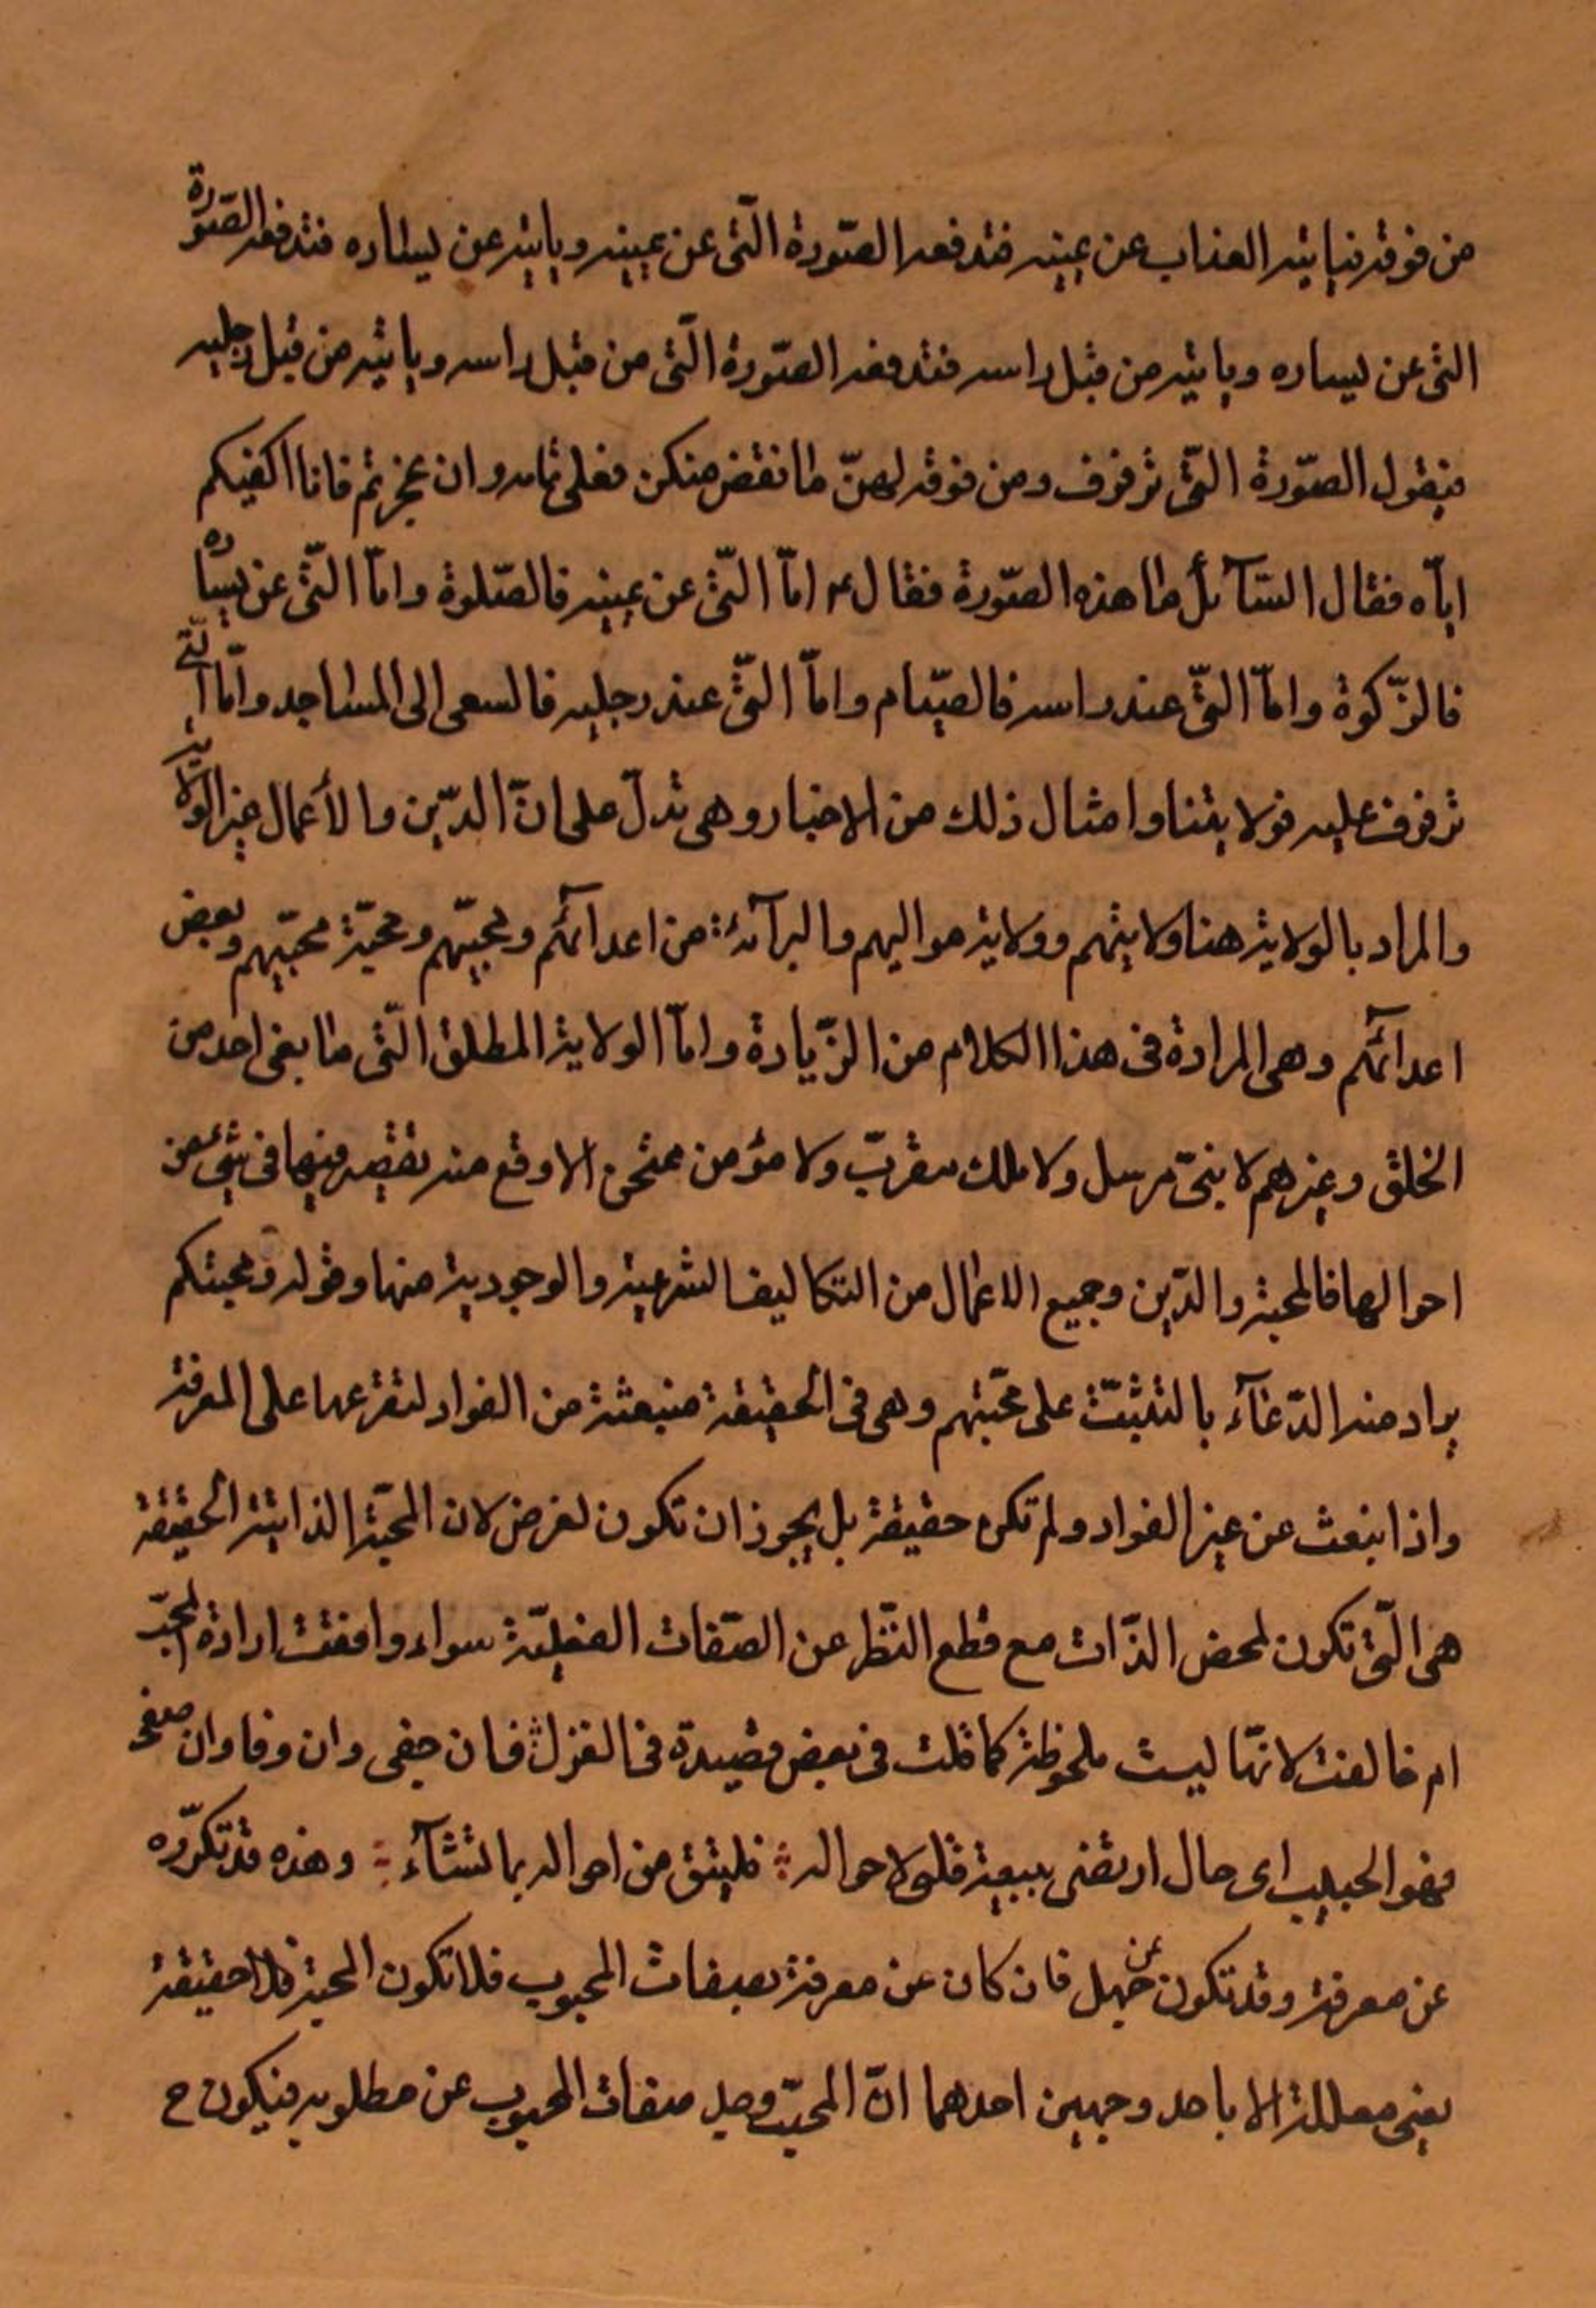 من فوقه فياتيه العذاب عن يمينه فتدفعه الصّورة الّتى عن يمينه وياتيه عن يساره فتدفعه الصّورة
التى عن يساره وياتيه من قبل راسه فتدفعه الصّورة الّتى من قبل راسه وياتيه من قبل رجليه
فيقول الصّورة الّتى ترفرف ومن فوقه لهنّ ما نقض منكن فعلى تمامه وان عجزتم فانا اكفيكم
ايّاه فقال السّآئل ما هذه الصّورة فقال ع امّا الّتى عن يمينه فالصّلوة وامّا الّتى عن يساره
فالزّكوة وامّا الّتى عند راسه فالصّيام وامّا الّتى عند رجليه فالسعى الى المساجد وامّا الّتى
ترفرف عليه فولايتنا وامثال ذلك من الاخبار وهى تدلّ على انّ الدّين والأعمال غير الولاية
والمراد بالولاية هنا ولايتهم وولاية مواليهم والبرآئة من اعدآئهم ومحبّيهم ومحبّة محبّيهم وبعض
اعدآئهم وهى المرادة فى هذا الكلام من الزّيارة وامّا الولاية المطلق الّتى ما بقى احد من
الخلق وغيرهم لا نبىّ مرسل ولا ملك مقرّب ولا مؤمن ممتحن الا وقع منه تقصير فيها فى شئ من
احوالها فالمحبة والدّين وجميع الاعمال من التكاليف الشرعية والوجودية منها وقوله ومحبتكم
يراد منه الدّعآء بالتثبّت على محبّتهم وهى فى الحقيقة منبعثة من الفواد لتفرعها على المعرفة
واذا انبعث عن غير الفواد ولم تكن حقيقة بل يجوز ان تكون لغرض لان المحبّة الذاتية الحقيقة
هى الّتى تكون لمحض الذّات مع قطع النّظر عن الصّفات الفعليّة سواء وافقت ارادة المحبّ
ام خالفت لانّها ليست ملحوظة كما قلت فى بعض قصيدة فى الغزل فان جفى وان وفا وان صفح
فهو الحبيب اى حال ارتضى ببيعة فلولا حواله فليثق من احواله بما تشآء وهذه قد تكرّره
عن معرفة وقد تكون عن جهل فان كان عن معرفة بصفات المحبوب فلا تكون المحبة فلا حقيقة
يعنى معللة الا باحد وجهين احدهما انّ المحبّ وصل صفات المحبوب عن مطلوبه فيكون ح